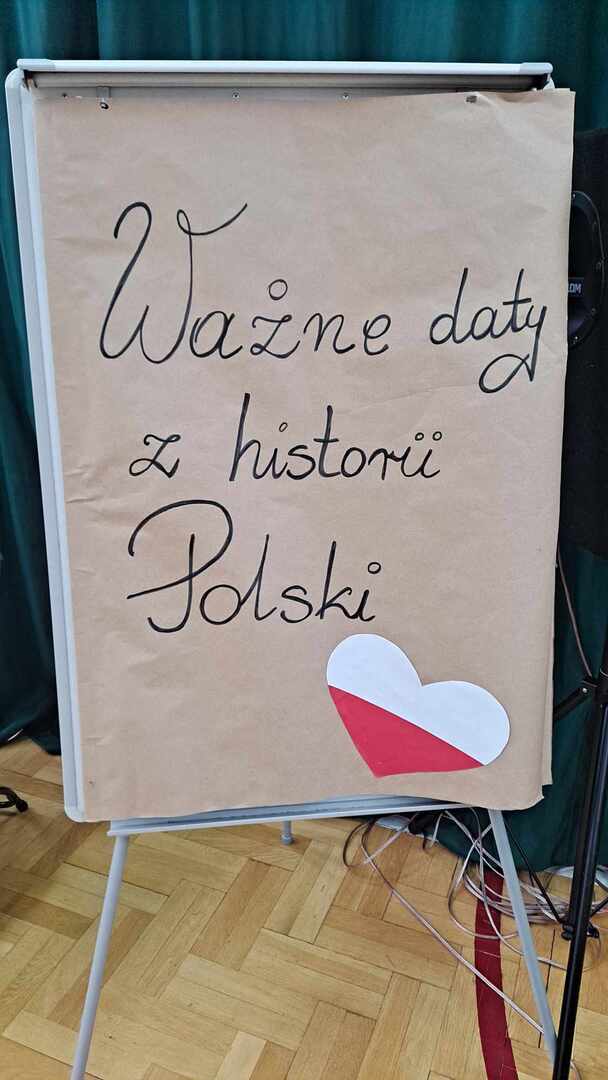 Ważne daty
z historii
Polski